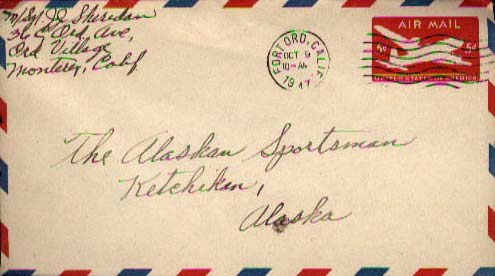 M/Sgt JE Sheridan
36 C Ord Ave,
Ord Village
Monterey, Calif
FORT ORD, CALIF.
OCT 9
10-AM
1947
AIR MAIL
5¢ 5¢
UNITED STATES OF AMERICA
The Alaskan Sportsman
Ketchikan,
Alaska